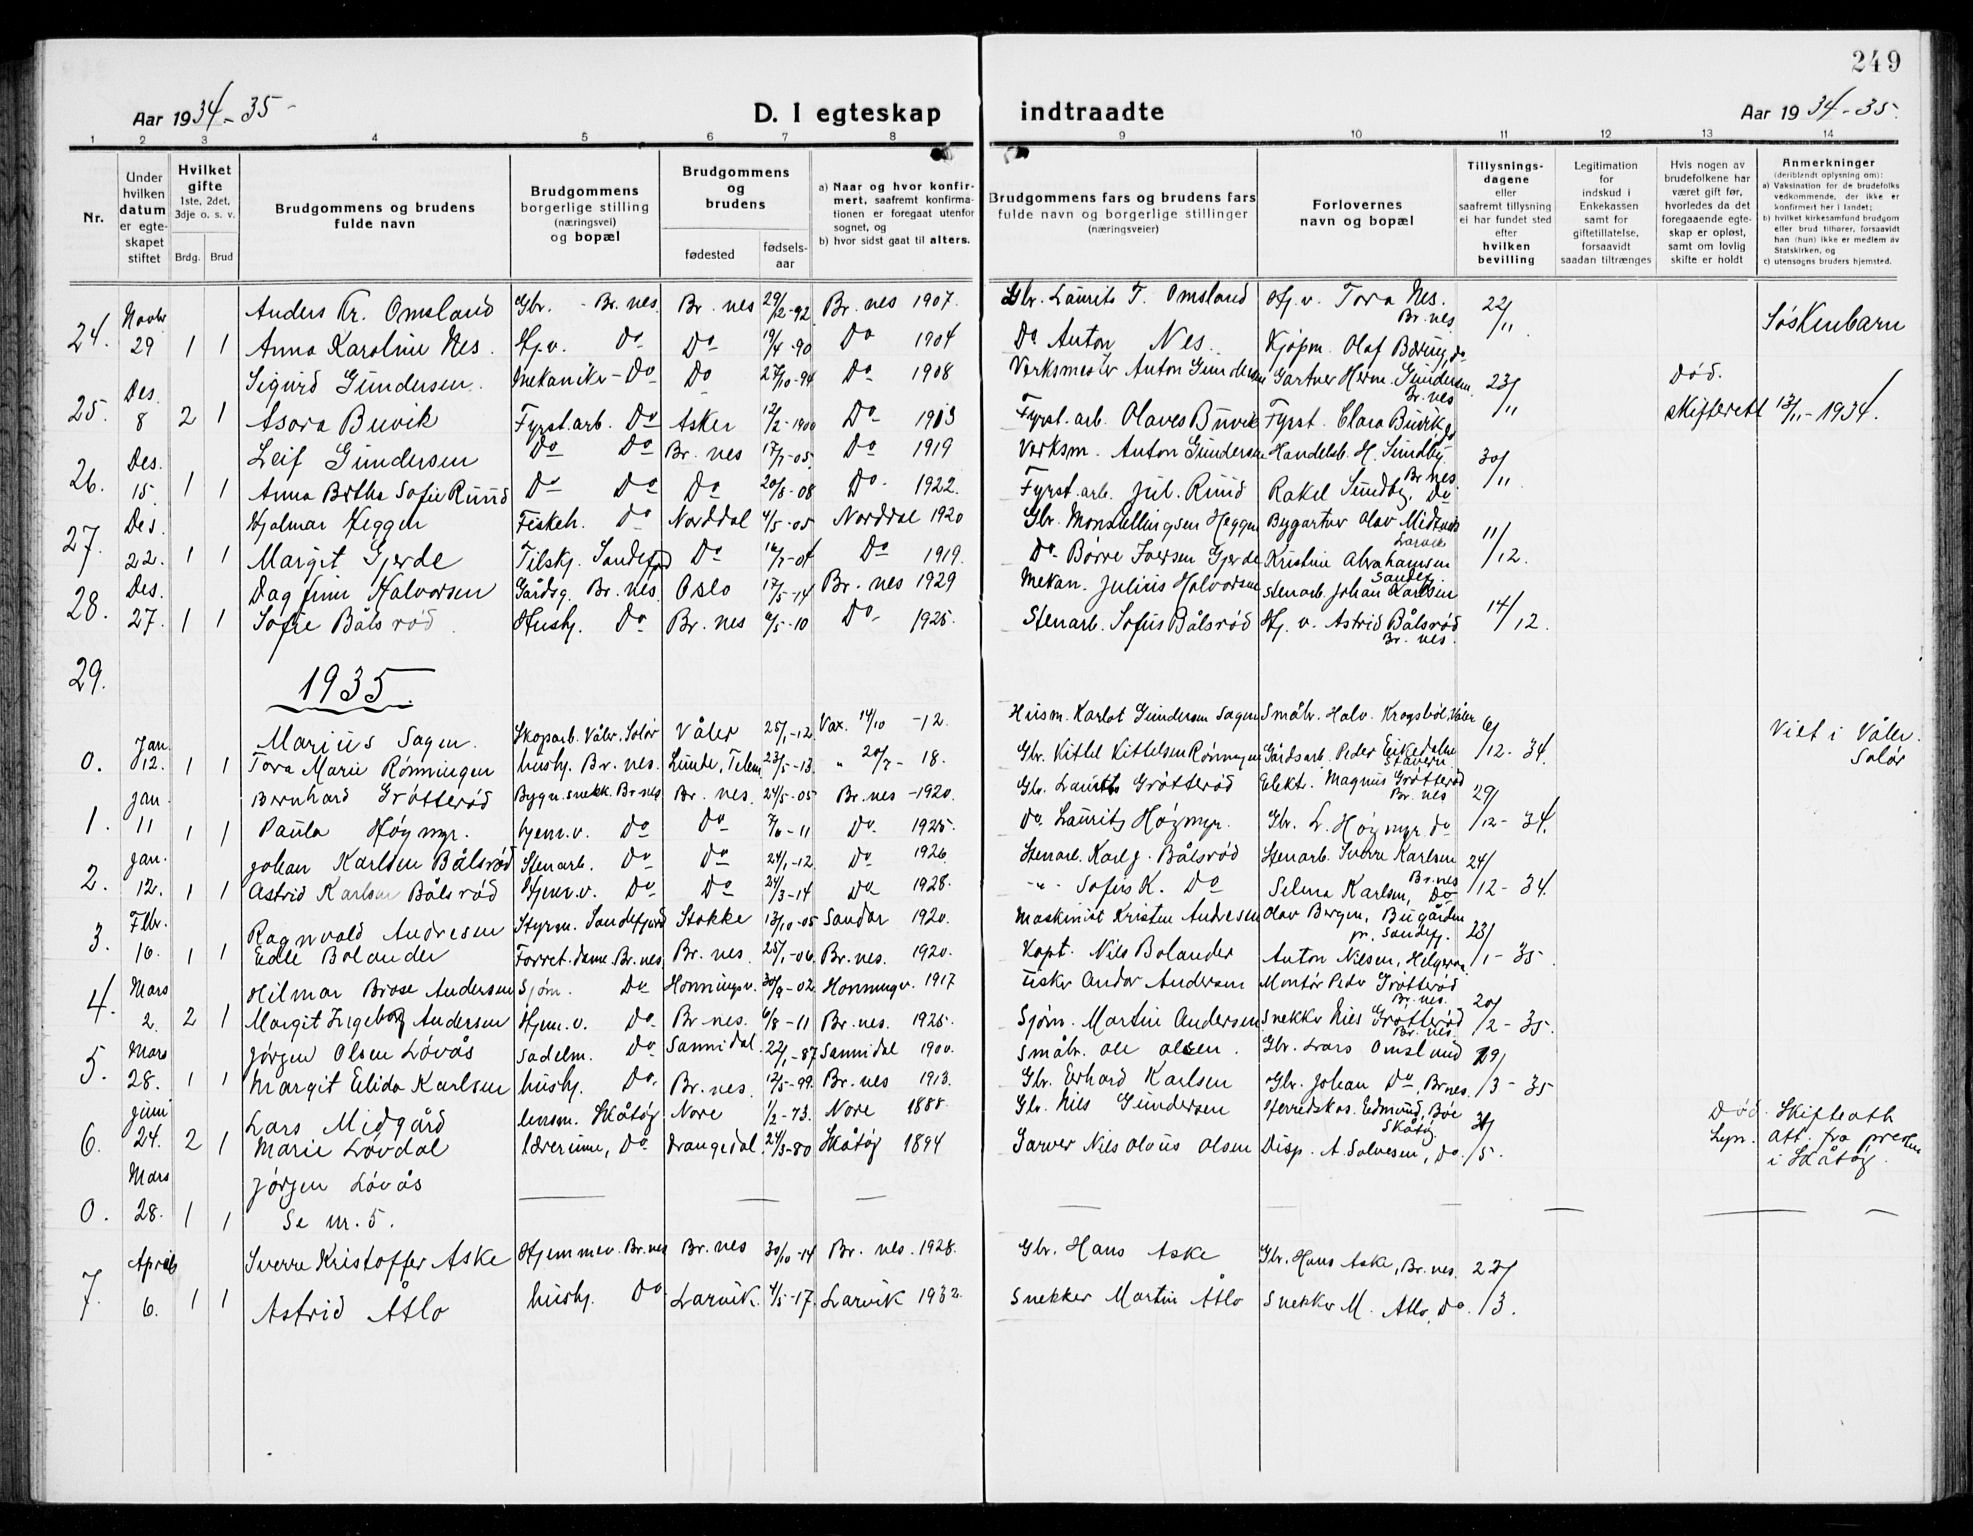 249
Aar 1934-35-
D. I egteskap indtraadte
Aar 1934-35.
1 2 3 4 5 6 7 8 9 10 11 12 13 14
Nr.
Under hvilken datum er egte-skapet stiftet
Hvilket gifte 1ste, 2det, 3dje o. s. v.
Brdg. Brud
Brudgommens og brudens fulde navn
Brudgommens borgerlige stilling (næringsvei) og bopæl
Brudgommens og brudens
fødested
fødsels-aar
a) Naar og hvor konfir-mert, saafremt konfirma-tionen er foregaat utenfor sognet, og
b) hvor sidst gaat til alters.
Brudgommens fars og brudens fars fulde navn og borgerlige stillinger (næringsveier)
Forlovernes navn og bopæl
Tillysnings-dagene eller saafremt tillysning ei har fundet sted efter hvilken bevilling
Legitimation for indskud i Enkekassen samt for giftetillatelse, forsaavidt saadan tiltrænges
Hvis nogen av brudefolkene har været gift før, hvorledes da det foregaaende egte-skap er opløst, samt om lovlig skifte er holdt
Anmerkninger (deriblendt oplysning om):
a) Vaksination for de brudefolks vedkommende, der ikke er konfirmert her i landet;
b) hvilket kirkesamfund brudgom eller brud tilhører, forsaavidt han (hun) ikke er medlem av Statskirken, og
c) utensogns bruders hjemsted.
24. Novbr 29 1 1 Anders Kr. Omsland Gbr. - Br.nes Br. nes 29/12-92 Br. nes 1907. Gbr. Laurits T. Omsland Hj. v. Tora Nes. Br. nes 22/11 Søskenbarn
Anna Karoline Nes. Hj.v. Do Do 19/4-90 Do 1904 Do Anton Nes. Kjøpm. Olaf Bærug, do
25. Des. 8 2 1 Sigurd Gundersen. Mekaniker - Do Do 27/10-94 Do 1908 Verksmester Anton Gundersen Gartner Herm. Gundersen Br. nes 23/11 Død. skifterett 13/11-1934.
Asora Buvik Fyrst.arb. Do Asker 12/2-1900 Do 1913 Fyrst. arb. Olaves Buvik Fyrst. Clara Buvik do
26. Des. 15. 1 1 Leif Gundersen Do Do Br. nes 17/7-05. Do 1919 Verksm. Anton Gundersen Handelsb. H. Sundby Br. nes. 30/11
Anna Brtha Sofie Ruud Do Do Do 20/8-08 Do- 1922. Fyrst. arb. Jul. Ruud Rakel Sundby, Do
27. Des. 22. 1 1 Hjalmar Heggen Fiskeh. Do Norddal 4/5-05 Norddal 1920 Gbr. Mons Ellingsen Heggen Bygartner Olav Midtvik Larvik 11/12.
Margit Gjerde Tilskj. Sandefjord Do 16/7-04 Do 1919. Do. Børre Iversen Gjerde Kristine Abrahamsen Sandefj.
28. Des. 27. 1 1 Dagfinn Halvorsen Gårdsg. Br. nes. Oslo 17/5-14 Br. nes 1929 Mekan. Julius Halvorsen Stenarb. Johan Karlsen 14/12.
Sofie Bålsrød. Hushj. Do Br. nes 9/5-10 Do- 1925. Stenarb. Sofus Bålsrød Hj. v. Astrid Bålsrød Br. nes.
29.
1935.
0. Jan. 12. 1 1 Marius Sagen. Skogarb. Våler, Solør Våler 25/1-12. Vax. 14/10 -12. Husm. Karlot Gundersen Sagen Småbr. Halv. Krogsbøl, Våler 6/12-34. Viet i Våler. Solør
Tora Marie Rønningen hushj. Br. nes. Lunde, Telem. 23/5-13. " 20/7- 18. Gbr. Kittel Kittelsen Rønningen Gårdsarb. Peder Eikedalen Stavern
1. Jan. 11 1 1 Bernhard Grøtterød Bygn. snekk. Br nes Br. nes. 24/5-05 Br.nes -1920. Gbr. Laurits Grøtterød Elekt. Magnus Grøtterød Br. nes 29/12-34.
Paula Høymyr. hjem.v. Do Do 7/6-11 Do. 1925. Do. Laurits Høymyr. Gbr. L. Høymyr. do
2. Jan. 12. 1 1 Johan Karlsen Bålsrød Stenarb. Do Do 24/1-12. Do 1926. Stenarb. Karl J. Bålsrød Stenarb. Sverre Karlsen Br. nes 24/12-34.
Astrid Karlsen Bålsrød Hjem.v. Do Do 24/3-14 Do 1928. -"- Sofus K. Do Selma Karlsen, Do
3. Febr. 16. 1 1 Ragnvald Andresen Styrm. Sandefjord Stokke 13/10-05 Sandar 1920. Maskinist Kristen Andresen Olav Bergen, Bugården pr. Sandefj. 23/1-35.
Edle Bolander Forret.dame. Br. nes. Br. nes. 25/1-06. Br. nes. 1920. Kapt. Nils Bolander Anton Nielsen, Helgeroa
4. Mars 2. 2 1 Hilmar Brose Andersen Sjøm. Do Honningsv. 30/9-02. Honningv. 1917 Fisker Andor Andersen Montør Peder Grøtterød Br. nes. 20/2-35.
Margit Ingeborg Andersen Hjem.v. Do. Br. nes. 6/8-11 Br. nes. 1925. Sjøm. Martin Andersen Snekker Nils Grøtterød Br. nes.
5. Mars 28. 1 1 Jørgen Olsen Løvås Sadelm. Do Sannidal. 22/1-87 Sannidal 1900. Småbr. Ole Olsen. Gbr. Lars Omslund 19/3-35
Margit Elida Karlsen hushj. Do. Br. nes. 12/5-99. Br. nes 1913. Gbr. Erhard Karlsen Gbr. Johan Do, Br nes.
6. Juni 24. 2 1 Lars Midgård lensm. Skåtøy Nore 1/2-73. Nore 1888. Gbr. Nils Gundersen Herredskas. Edmund Bøe Skåtøy 31/5. Død. Skifteatt. Lyn. att. fra presten i Skåtøy.
Marie Løvdal lærerinne, Do Drangedal. 24/3-80 Skåtøy 1894 Garver Nils Olaus Olsen Disp. A. Salvesen, Do.
0. Mars 28. 1 1 Jørgen Løvås
Se nr. 5.
7. April 6. 1 1 Sverre Kristoffer Aske Hjemmev. Br. nes Br. nes 30/10-14 Br. nes. 1928. Gbr. Hans Aske Gbr. Hans Aske, Br. nes. 22/3.
Astrid Atlo hushj. Do. Larvik. 4/5-17. Larvik 1932. Snekker Martin Atlo Snekker M. Atlo, Do.